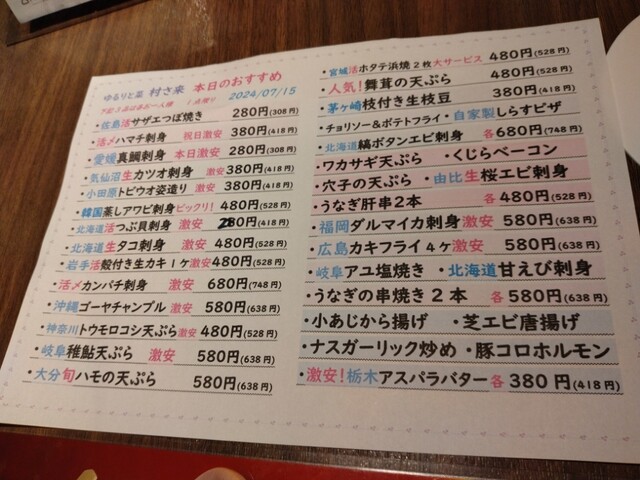 ゆるりと菜 村さ来 本日のおすすめ
下記3品はお一人様 1点限り 2024/07/15
・佐島活サザエつぼ焼き 280円(308円)
・活〆ハマチ刺身 祝日激安 380円(418円)
・愛媛真鯛刺身 本日激安 280円(308円)
・気仙沼生カツオ刺身 激安 380円(418円)
・小田原トビウオ姿造り 激安 380円(418円)
・韓国蒸しアワビ刺身ビックリ! 480円(528円)
・北海道活つぶ貝刺身 激安 280円(418円)
・北海道生タコ刺身 激安 480円(528円)
・岩手活殻付き生カキ1ヶ激安 480円(528円)
・活〆カンパチ刺身 激安 680円(748円)
・沖縄ゴーヤチャンプル 激安 580円(638円)
・神奈川トウモロコシ天ぷら激安 480円(528円)
・岐阜稚鮎天ぷら 激安 580円(638円)
・大分旬ハモの天ぷら 580円(638円)
・宮城活ホタテ浜焼2枚大サービス 480円(528円)
・人気!舞茸の天ぷら 480円(528円)
・茅ヶ崎枝付き生枝豆 380円(418円)
・チョリソー&ポテトフライ ・自家製しらすピザ
・北海道縞ボタンエビ刺身 各680円(748円)
・ワカサギ天ぷら ・くじらベーコン
・穴子の天ぷら ・由比生桜エビ刺身
・うなぎ肝串2本 各480円(528円)
・福岡ダルマイカ刺身 激安 580円(638円)
・広島カキフライ4ヶ激安 580円(638円)
・岐阜アユ塩焼き ・北海道甘えび刺身
・うなぎの串焼き2本 各580円(638円)
・小あじから揚げ ・芝エビ唐揚げ
・ナスガーリック炒め ・豚コロホルモン
・激安!栃木アスパラバター 各380円(418円)